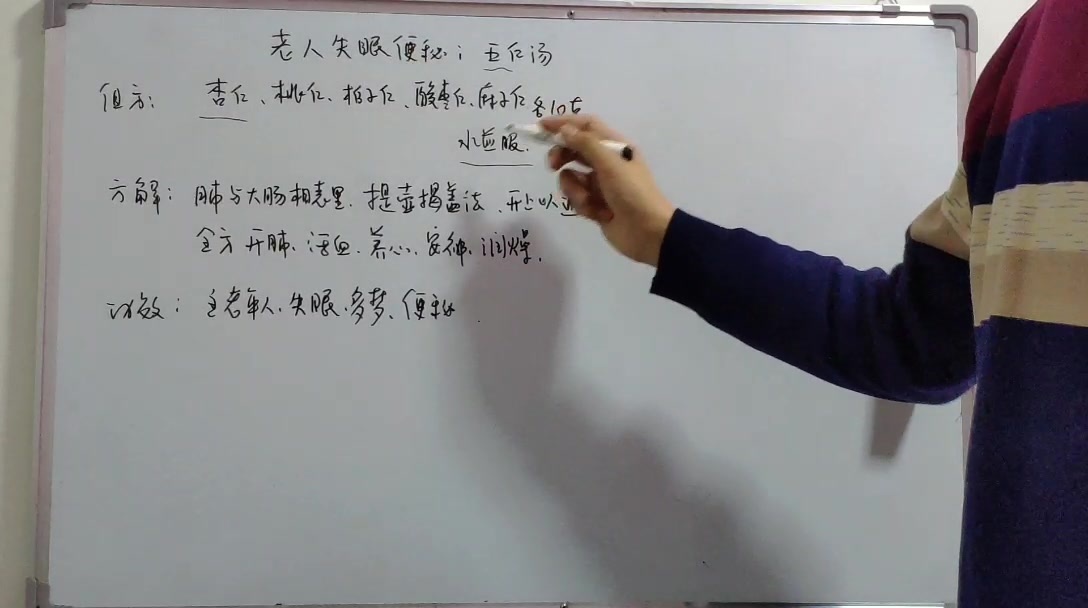 老人失眠便秘：五仁汤
组方：杏仁、桃仁、柏子仁、酸枣仁、麻子仁 各10克
水煎服.
方解：肺与大肠相表里. 提壶揭盖法、开上以
全方开肺、活血、养心、安神、润燥.
功效：主老年人.失眠.多梦、便秘